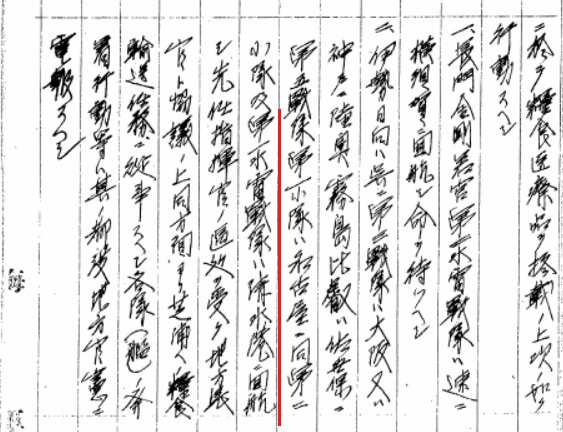 ニ於テ糧食医療品ヲ搭載ノ上次ノ如ク
行動スヘシ
一、長門金剛若宮第一水雷戦隊ハ速ニ
横須賀ニ回航シ命ヲ待ツヘシ
二、伊勢日向ハ呉ニ第三戦隊ハ大阪又ハ
神戸ニ陸奥霧島比叡ハ佐世保ニ
第五戦隊第一小隊ハ名古屋ニ同第二
小隊及第一水雷戦隊ハ清水港ニ回航
シ先任指揮官ノ区処ヲ受ケ地方長
官ト協議ノ上同方面ヨリ芝浦ヘ糧食
輸送任務ニ従事スヘシ各隊(艦)ノ発
着行動等ハ其ノ都度地方官憲ニ
電報スヘシ